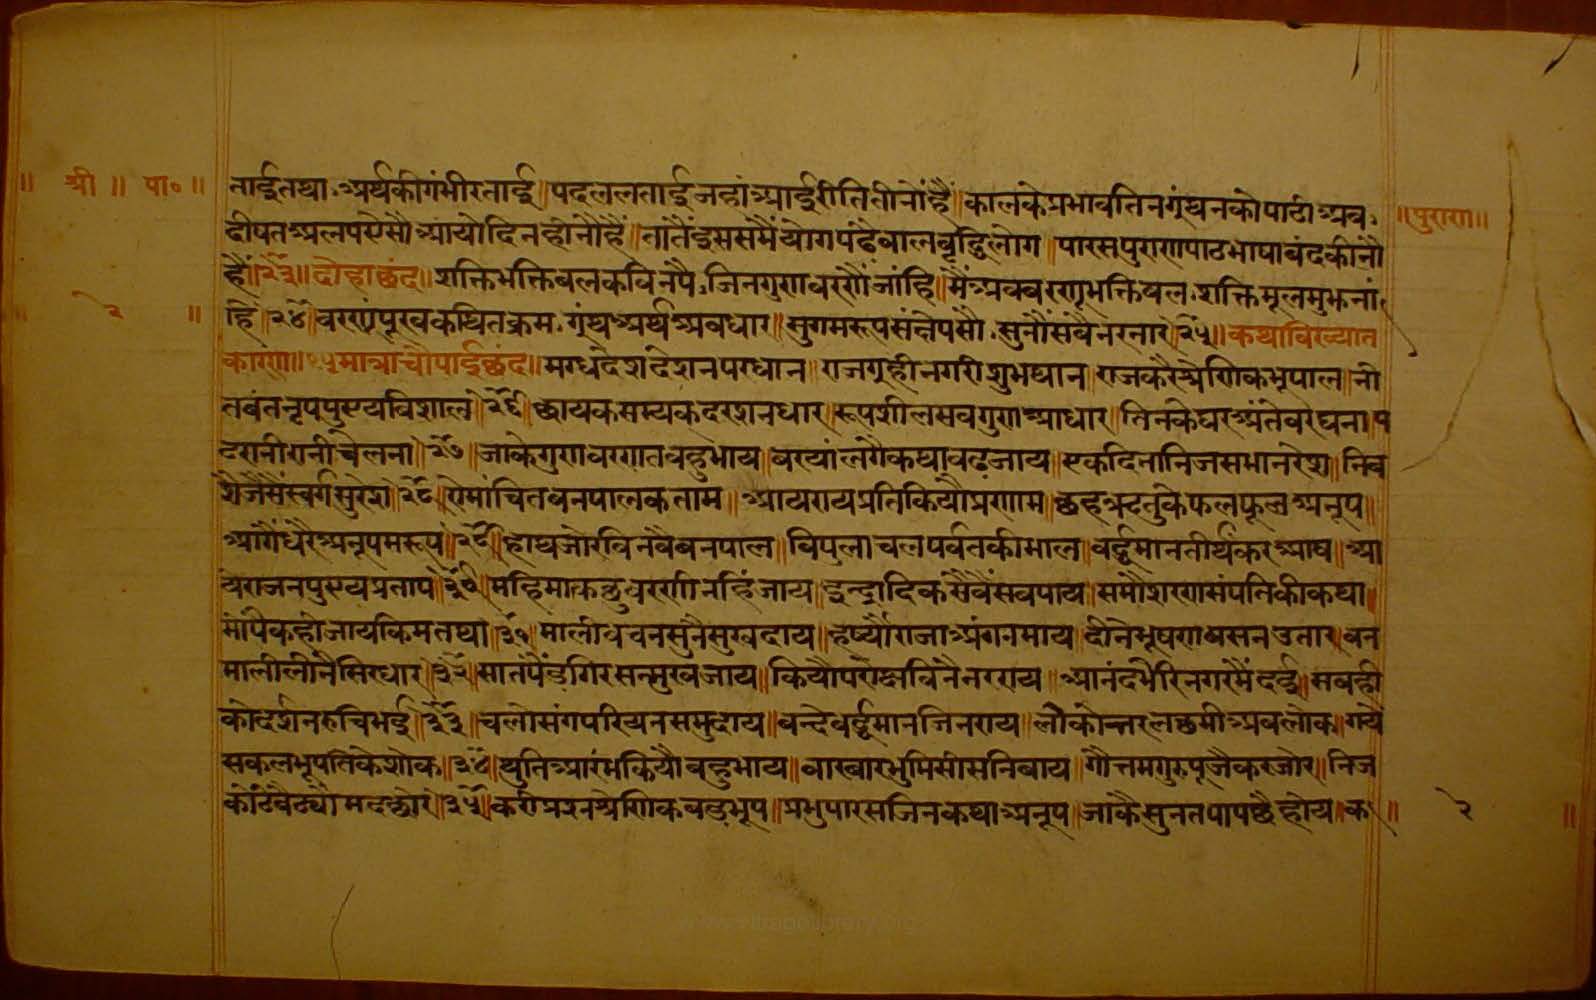 ॥ श्री ॥ पा० ॥
॥ पुराण ॥
ताईतथा अर्थकीगंभीरताई॥पदललताईजहांआईरीतितीनोंहैं॥कालकेप्रभावतिनग्रंथनकोपाठीअब
दीषतअलपऐसौआयोदिनहीनौहैं॥तातैंइससमैंयोगपढैंबालबुद्धिलोग॥पारसपुराणपाठभाषाबंदकीनौ
हैं॥२३॥दोहाछंद॥शक्तिभक्तिबलकविनपै जिनगुणवरणेंजांहि॥मैंअबवरणूभक्तिबल शक्तिमूलमुझनां
॥ २ ॥
हिं॥२४॥वरणूंपूरवकथितक्रम ग्रंथअर्थअवधार॥सुगमरूपसंक्षेपसौ सुनौंसंबैनरनार॥२५॥कथाविख्यात
कारण॥१५मात्राचौपाईछंद॥मगधदेशदेशनपरधान॥राजगृहीनगरीशुभथान॥राजकरैश्रेणिकभूपाल॥नी
तवंतनृपपुण्यविशाल॥२६॥छायकसम्यकदरशनधार॥रूपशीलसबगुणआधार॥तिनकेघरअंतेवरघना॥प
टरानीरानीचेलना॥२७॥जाकेगुणवरणतबहुभाय॥वरण्यांलगैकथाबढजाय॥एकदिनानिजसभानरेश॥निव
शैजैसैंस्वर्गसुरेश॥२८॥रोमांचितवनपालकताम॥आयरायप्रतिकियौप्रणाम॥छहऋतुकेफलफूलअनूप॥
आगैंधरेअनूपमरूप॥२९॥हाथजोरविनवैबनपाल॥विपुलाचलपर्वतकीभाल॥वर्द्धमानतीर्थंकरआप॥आ
येराजनपुण्यप्रताप॥३०॥महिमाकछुवरणीनहिंजाय॥इन्द्रादिकसेवैंसबपाय॥समौशरणसंपतिकीकथा॥
मोंपैकहीजायकिमतथा॥३१॥मालीवचनसुनैसुखदाय॥हर्ष्यौराजाअंगनमाय॥दीनेभूषणबसनउतार॥बन
मालीलीनैसिरधार॥३२॥सातपैंडगिरसन्मुखजाय॥कियौपरोक्षविनैनरराय॥आनंदभेरिनगरमैंदई॥सबही
कोदर्शनरुचिभई॥३३॥चलोसंगपरियनसमुदाय॥वन्देवर्द्धमानजिनराय॥लोकोत्तरलछमीअवलोक॥गये
सकलभूपतिकेशोक॥३४॥थुतिआरंभकियौबहुभाय॥बारबारभुमिसीसनिवाय॥गौत्तमगुरुपूजैकरजोर॥निज
कोठैबैठ्यौमदछोर॥३५॥करीप्रश्नश्रेणिकबडभूप॥प्रभुपारसजिनकथाअनूप॥जाकैसुनतपापछैहोय॥क
॥ २ ॥